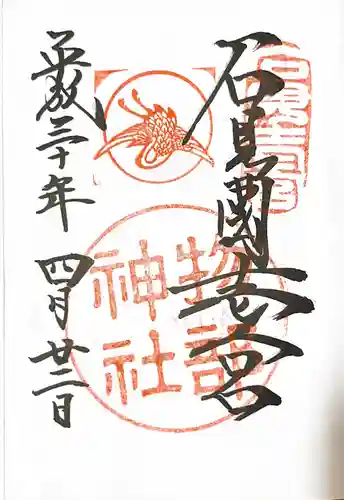 石見國一之宮
物部
神社
平成三十年
四月廿二日